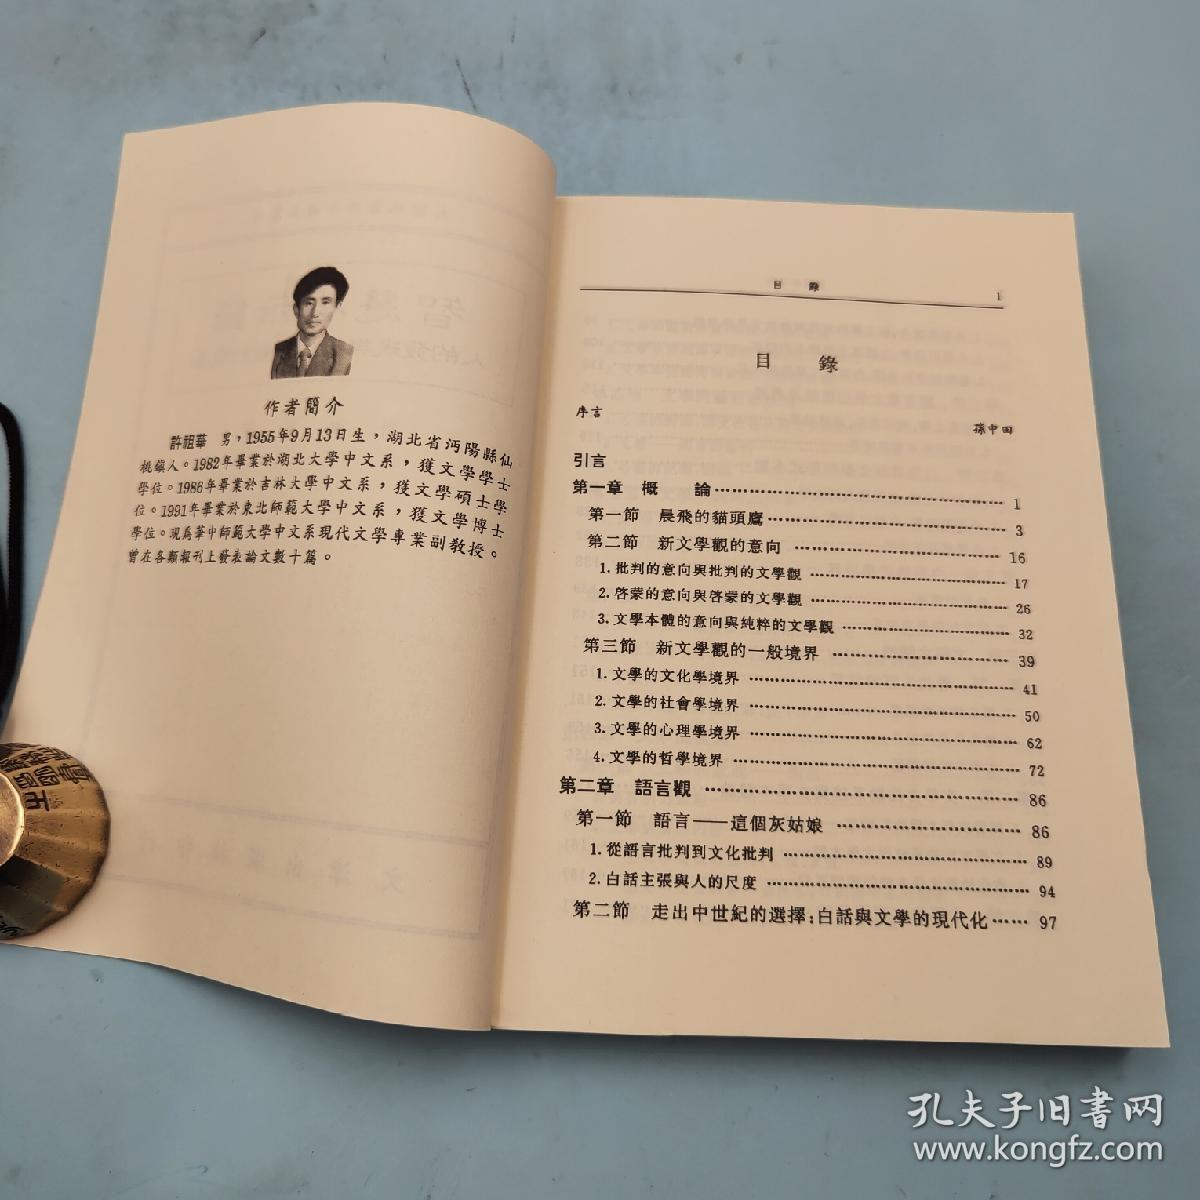 作者簡介
許祖華　男，1955年9月13日生，湖北省沔陽縣仙
桃鎮人。1982年畢業於湖北大學中文系，獲文學學士
學位。1986年畢業於吉林大學中文系，獲文學碩士學
位。1991年畢業於東北師範大學中文系，獲文學博士
學位。現爲華中師範大學中文系現代文學專業副教授。
曾在各類報刊上發表論文數十篇。
目　錄　1
目　錄
序言　孫中田
引言
第一章　概　論……………………1
第一節　晨飛的貓頭鷹……………………3
第二節　新文學觀的意向……………………16
1.批判的意向與批判的文學觀……………………17
2.啓蒙的意向與啓蒙的文學觀……………………26
3.文學本體的意向與純粹的文學觀……………………32
第三節　新文學觀的一般境界……………………39
1.文學的文化學境界……………………41
2.文學的社會學境界……………………50
3.文學的心理學境界……………………62
4.文學的哲學境界……………………72
第二章　語言觀……………………86
第一節　語言——這個灰姑娘……………………86
1.從語言批判到文化批判……………………89
2.白話主張與人的尺度……………………94
第二節　走出中世紀的選擇：白話與文學的現代化……97
孔夫子旧书网
www.kongfz.com